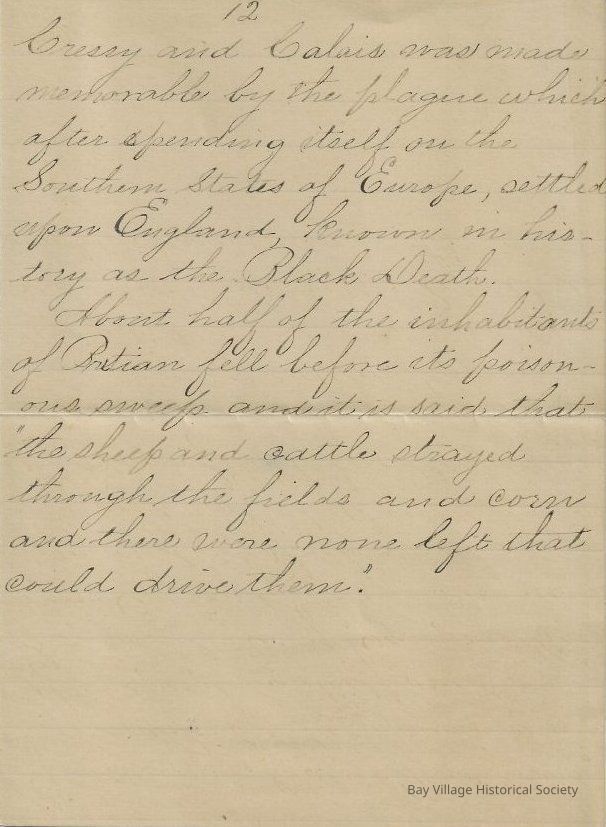 12
Cressy and Calais was made
memorable by the plague which
after spending itself on the
Southern States of Europe, settled
upon England, known in his-
tory as the Black Death.
About half of the inhabitants
of Britian fell before its poison-
ous sweep and it is said that
"the sheep and cattle strayed
through the fields and corn
and there were none left that
could drive them".
Bay Village Historical Society